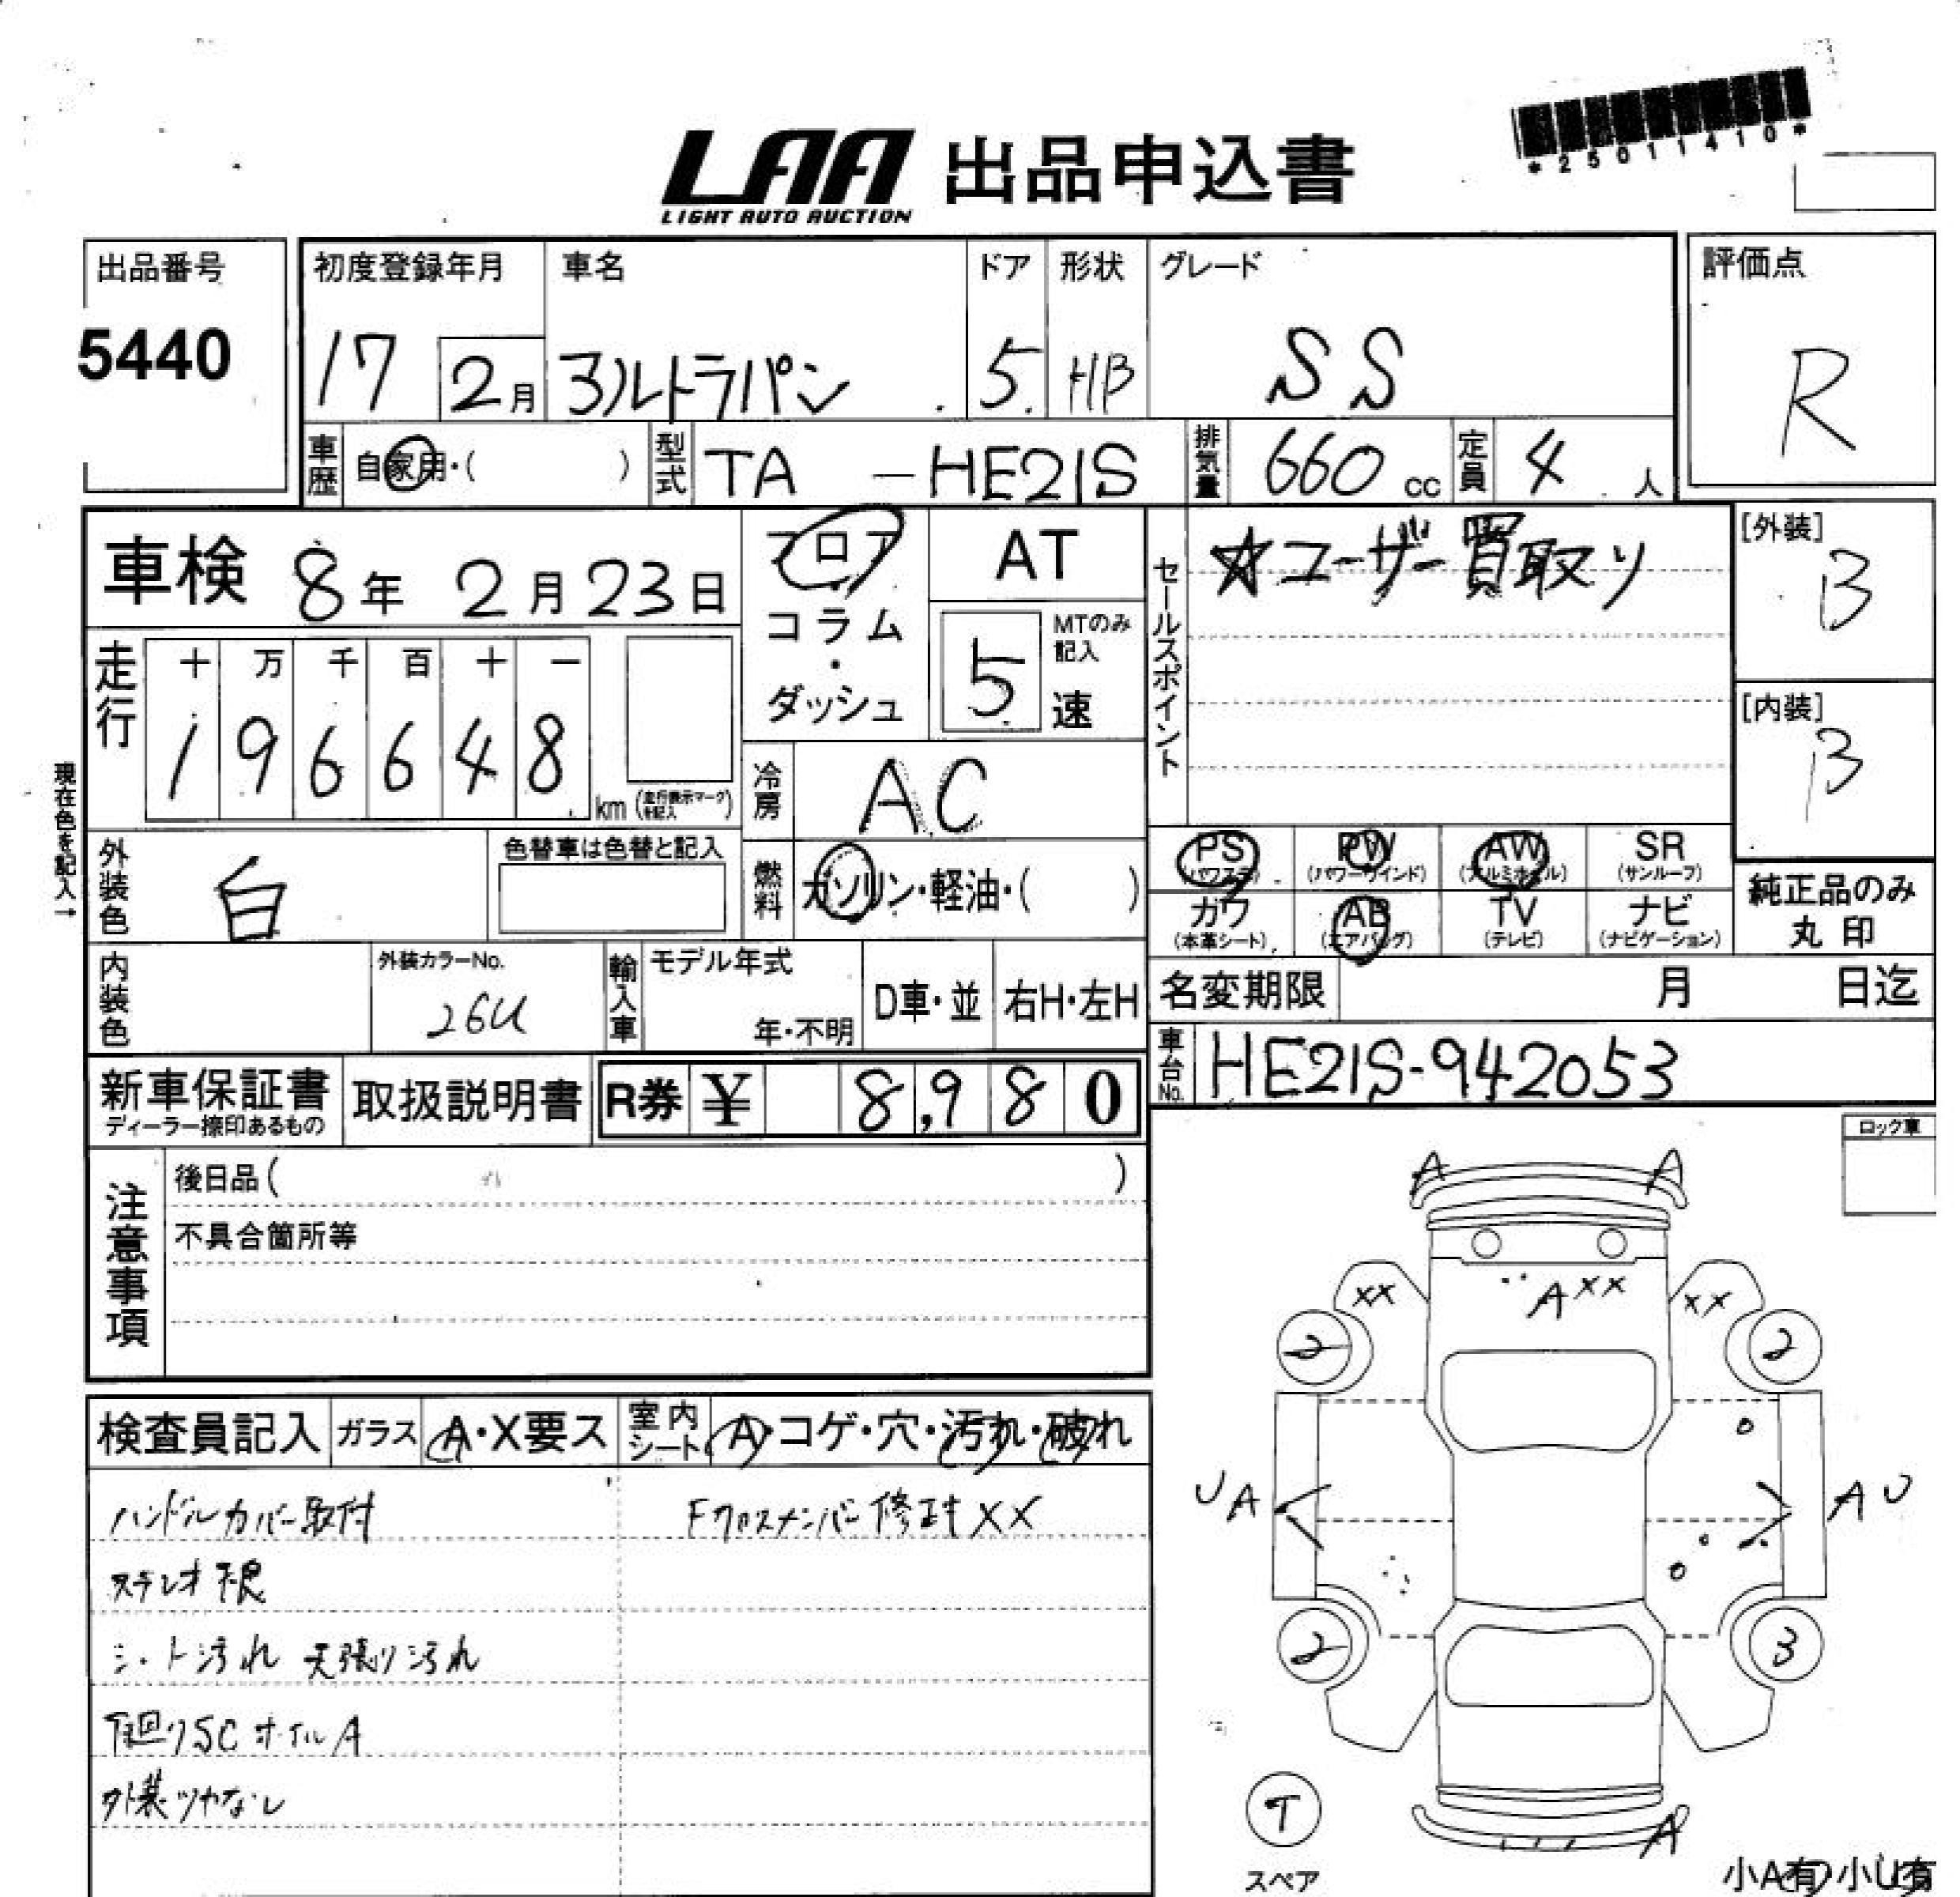 LAA 出品申込書
LIGHT AUTO AUCTION
*25011410*
出品番号
5440
初度登録年月 車名 ドア 形状 グレード
17 2月 アルトラパン 5 HB SS
評価点
R
車歴 自家用・( ) 型式 TA - HE21S 排気量 660 cc 定員 4 人
車検 8年 2月23日
フロア・コラム・ダッシュ
AT
5 速
MTのみ記入
セールスポイント
☆ユーザー買取り
[外装]
B
[内装]
B
走行 十 万 千 百 十 一
1 9 6 6 4 8 km (走行表示マークを記入)
冷房 AC
現在色を記入→
外装色 白 色替車は色替と記入
燃料 ガソリン・軽油・( )
PS (パワステ) PW (パワーウインド) AW (アルミホイル) SR (サンルーフ)
カワ (本革シート) AB (エアバッグ) TV (テレビ) ナビ (ナビゲーション)
純正品のみ
丸印
内装色 外装カラーNo. 26U 輸入車 モデル年式 年・不明 D車・並 右H・左H
名変期限 月 日迄
車台No. HE21S-942053
新車保証書 取扱説明書 R券 ¥ 8,980
ディーラー捺印あるもの
ロック車
注意事項
後日品( )
不具合箇所等
検査員記入 ガラス A・X要ス 室内シート A・コゲ・穴・汚れ・破れ
ハンドルカバー取付 Fクロスメンバー修正XX
ステレオ不良
シート汚れ 天張り汚れ
下廻りSC ホイルA
外装ツヤなし
A A
XX AXX XX
2 2
UA AU
2 3
T
スペア
A
小A有・小U有